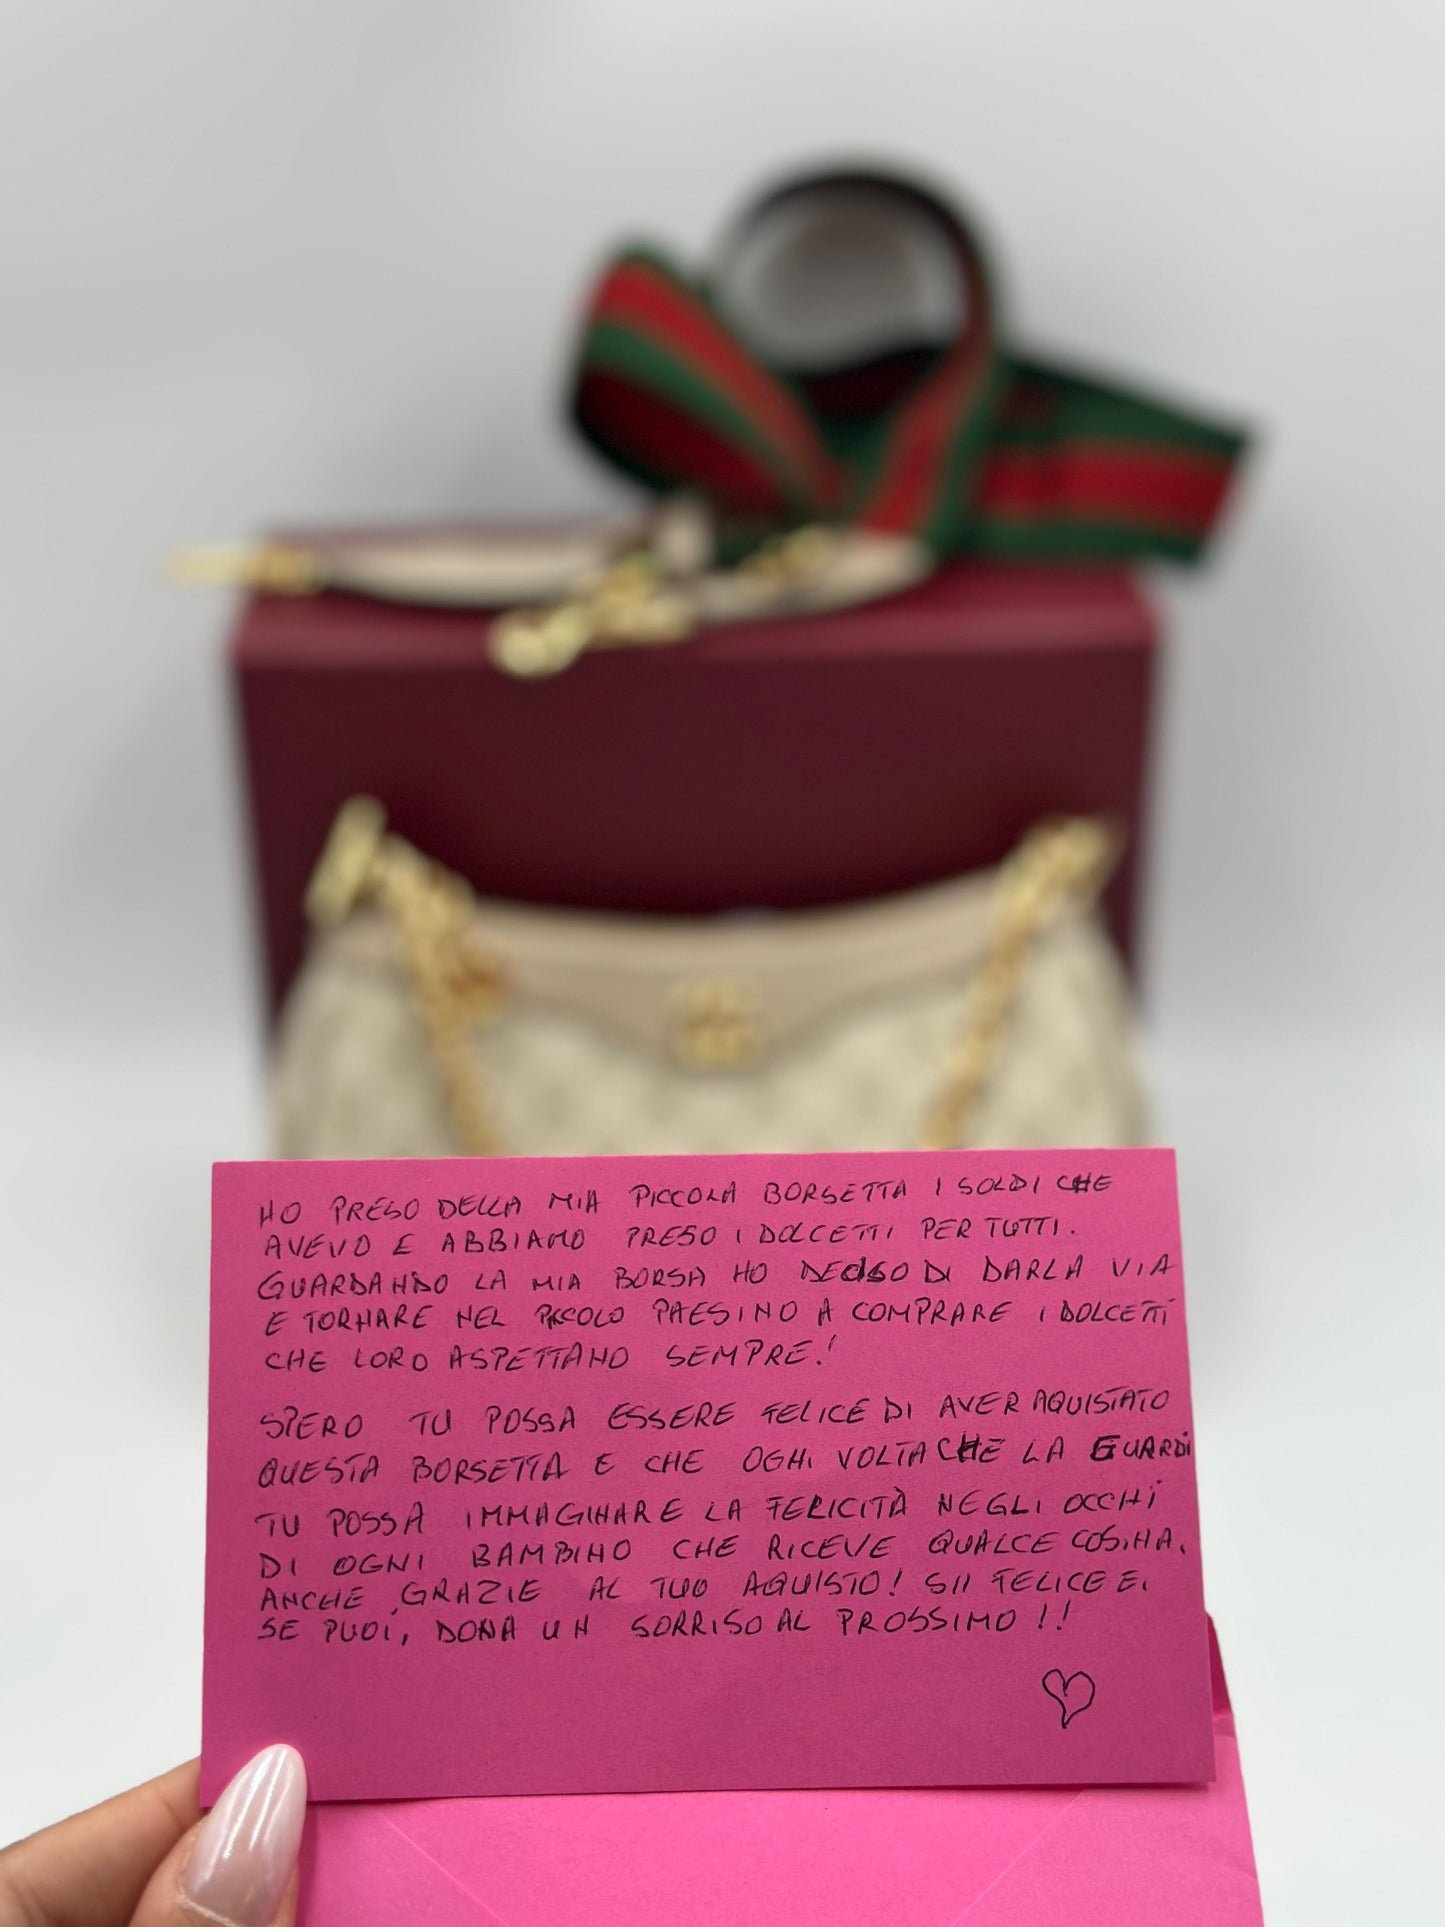 HO PRESO DELLA MIA PICCOLA BORSETTA I SOLDI CHE
AVEVO E ABBIAMO PRESO I DOLCETTI PER TUTTI.
GUARDANDO LA MIA BORSA HO DECISO DI DARLA VIA
E TORNARE NEL PICCOLO PAESINO A COMPRARE I DOLCETTI
CHE LORO ASPETTANO SEMPRE!
SPERO TU POSSA ESSERE FELICE DI AVER AQUISTATO
QUESTA BORSETTA E CHE OGNI VOLTA CHE LA GUARDI
TU POSSA IMMAGINARE LA FELICITÀ NEGLI OCCHI
DI OGNI BAMBINO CHE RICEVE QUALCE COSINA.
ANCHE GRAZIE AL TUO AQUISTO! SII FELICE E,
SE PUOI, DONA UN SORRISO AL PROSSIMO!!